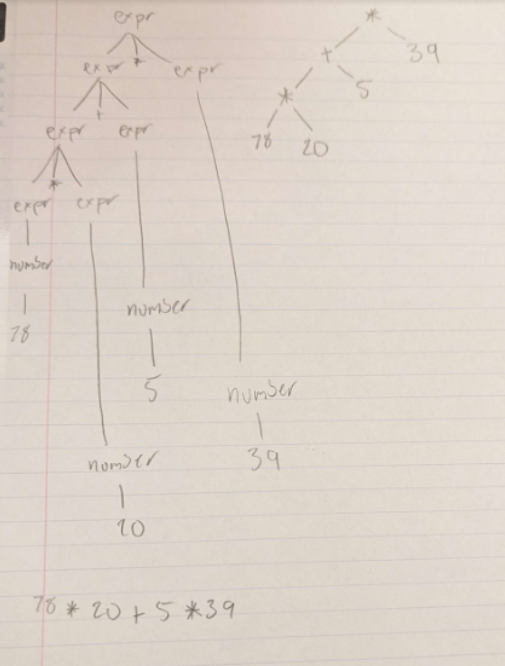 expr
expr * expr
expr + expr
expr * expr
number
78
number
5
number
39
number
20
*
+ 39
* 5
78 20
78 * 20 + 5 * 39